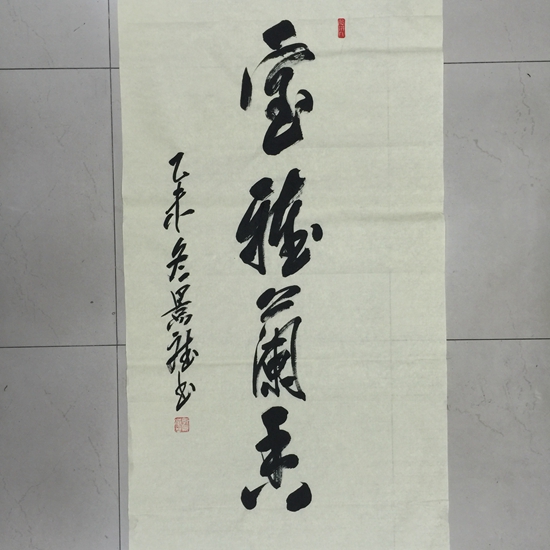 室雅蘭香
乙未冬景龍书